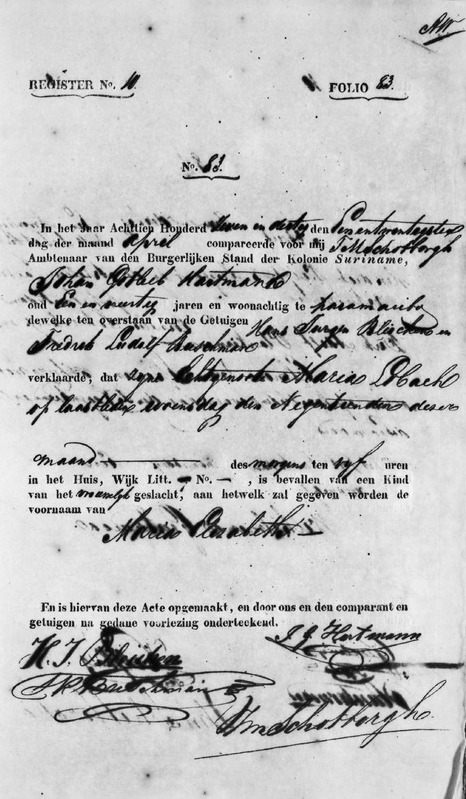 REGISTER No. 10.
FOLIO 83.
No. 83.
In het Jaar Achttien Honderd zeven en dertig den Een en twentigsten
dag der maand April compareerde voor mij Schotborgh
Ambtenaar van den Burgerlijken Stand der Kolonie Suriname,
Johan Gotlieb Hartmann
oud een en veertig jaren en woonachtig te paramaribo
dewelke ten overstaan van de Getuigen Hans Jurgen en
Fredrik Rudolf
verklaarde, dat zijne Echtgenoote Maria
op laastleden woensdag den Negentienden deser
maand des morgens ten vyf uren
in het Huis, Wijk Litt. — No. —, is bevallen van een Kind
van het geslacht, aan hetwelk zal gegeven worden de
voornaam van
Maria Elizabeth
En is hiervan deze Acte opgemaakt, en door ons en den comparant en
getuigen na gedane voorlezing onderteekend.
J. G. Hartmann
H. J.
Schotborgh